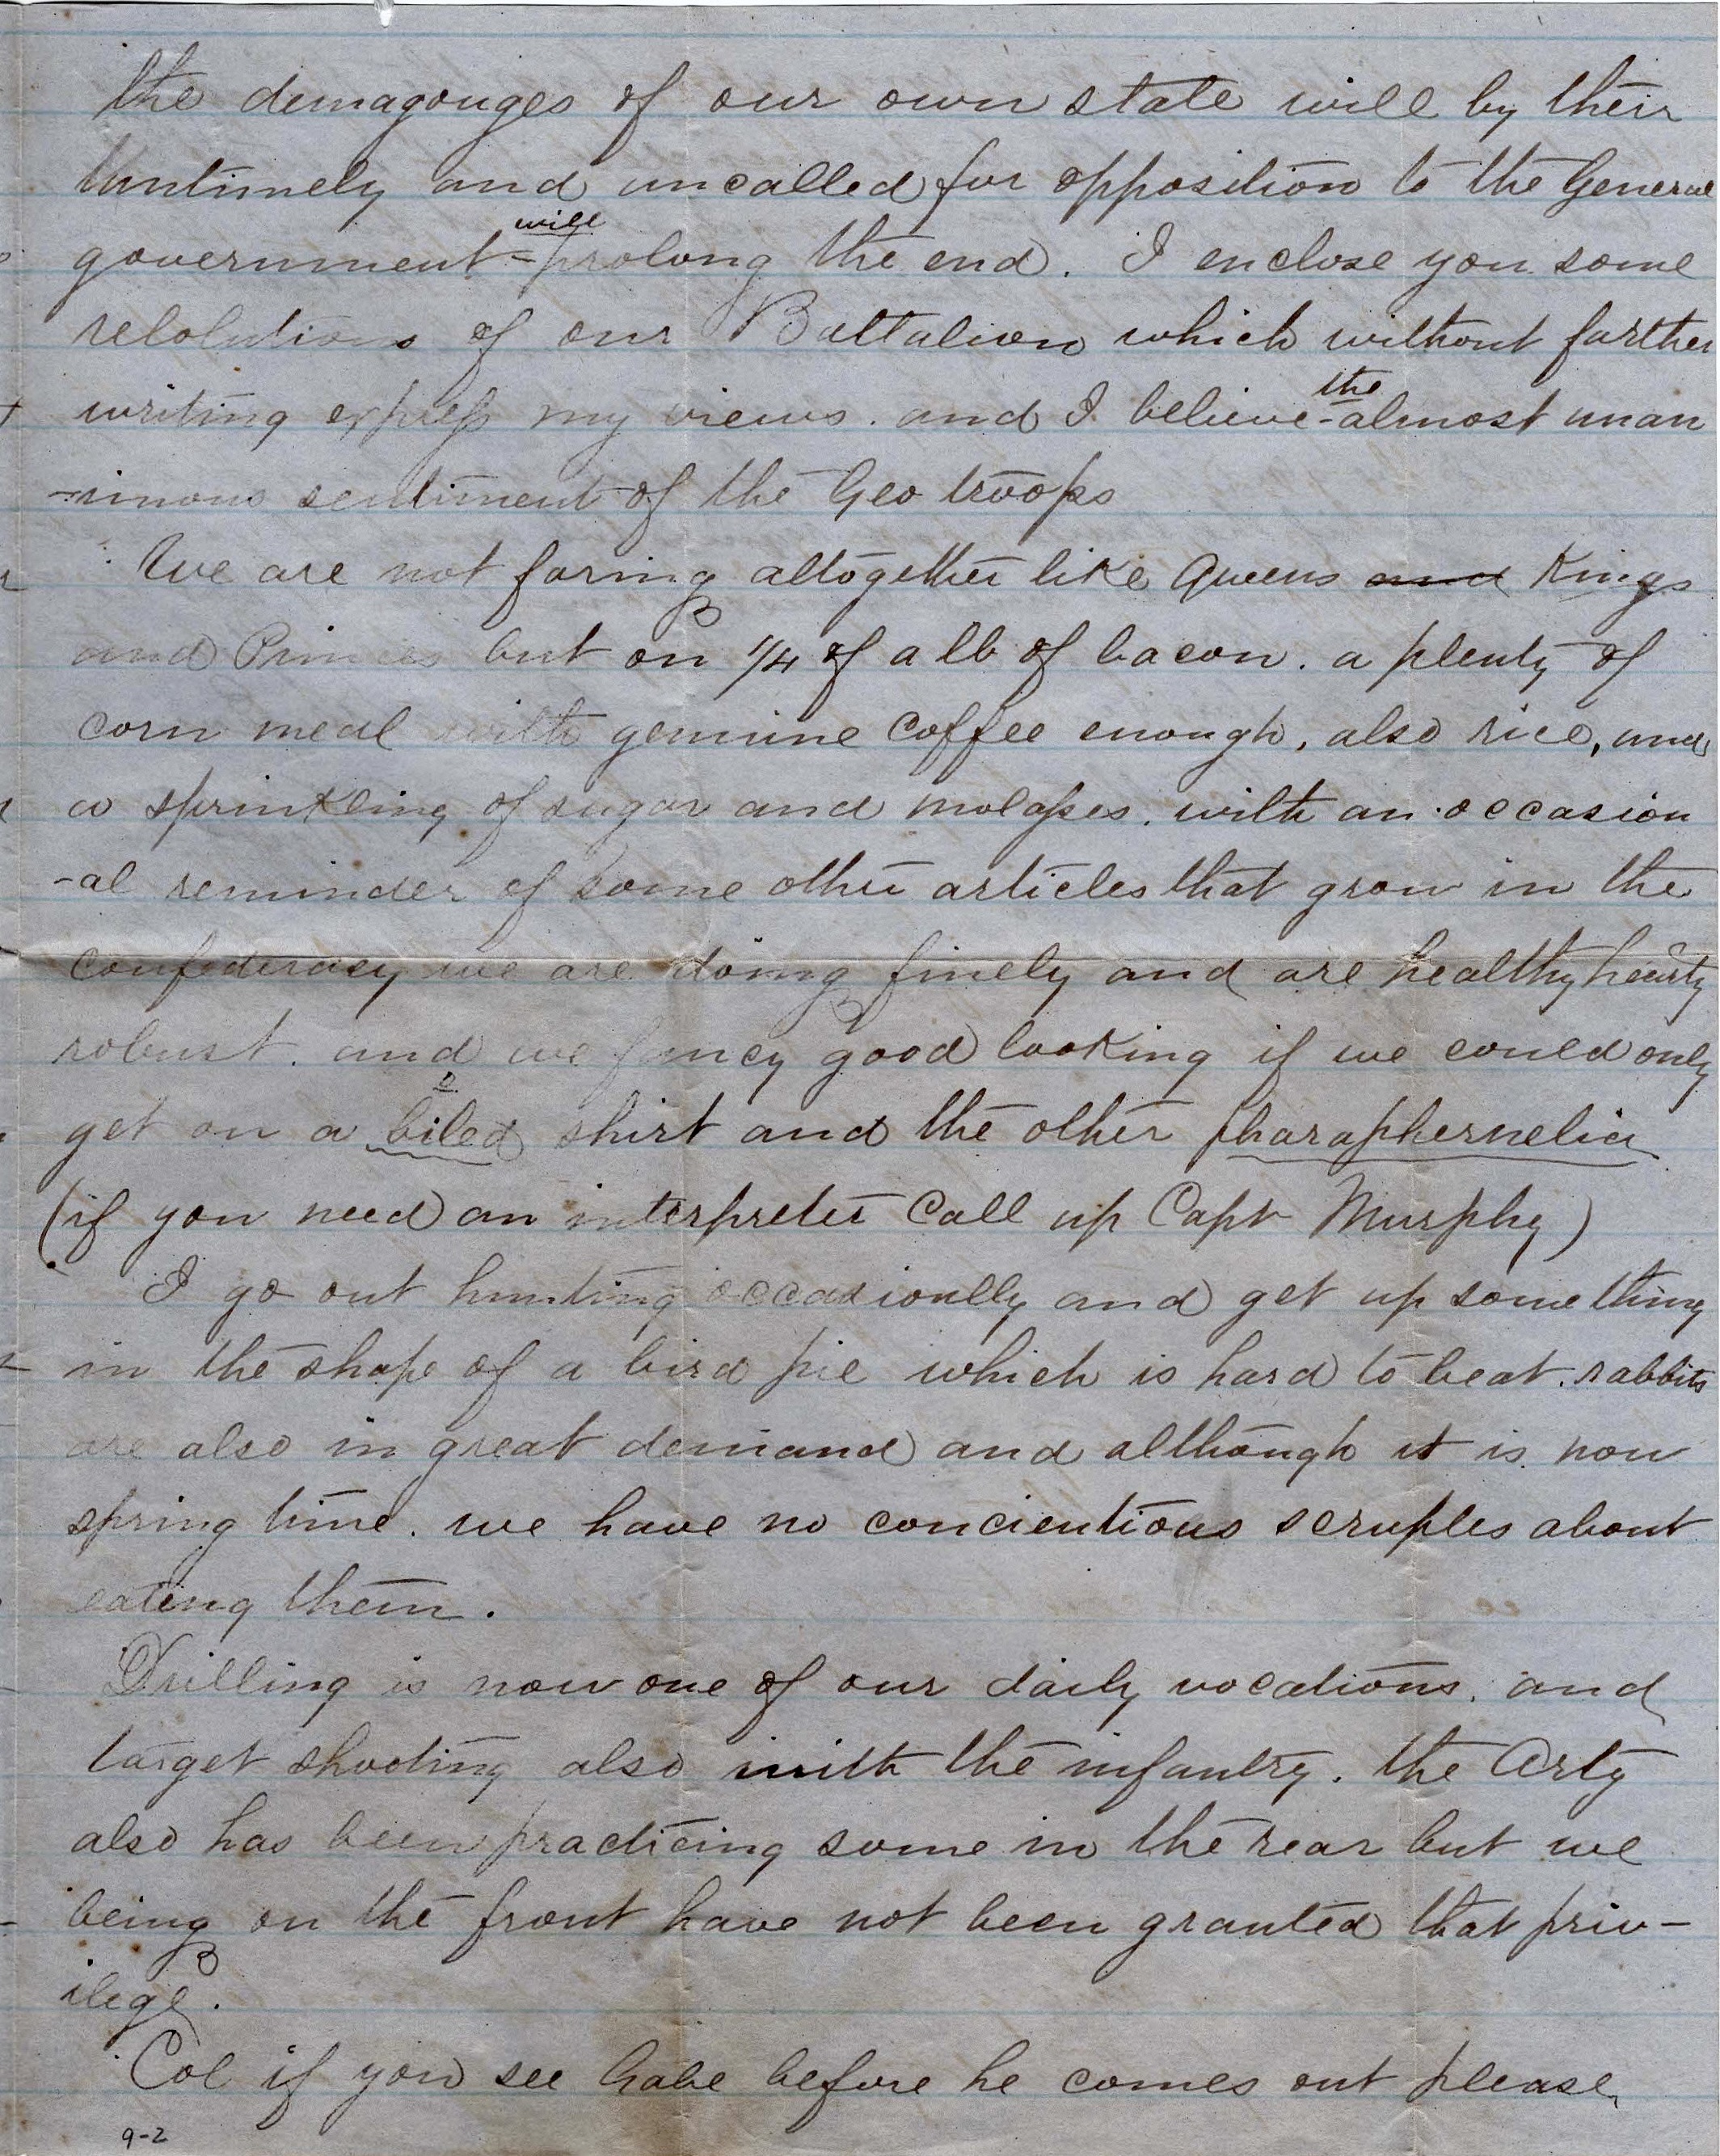 the demagouges of our own state will by their
Untimely and uncalled for opposition to the General
government will prolong the end. I enclose you some
relolutions of our Battalion which without farther
writing express my views. and I believe the almost unan
-imous sentiment of the Geo troops
We are not faring altogether like Queens and Kings
and Princes but on 1/4 of a lb of bacon. a plenty of
corn meal with genuine coffee enough, also rice, and
a sprinkling of sugar and molasses. with an occasion
-al reminder of some other articles that grow in the
confederacy we are doing finely and are healthy hearty
robust. and we fancy good looking if we could only
get on a biled shirt and the other pharaphernelia
(if you need an interpreter Call up Capt Murphy)
I go out hunting occasionally and get up something
in the shape of a bird pie which is hard to beat. rabbits
are also in great demand and although it is now
spring time. we have no concientious scruples about
eating them.
Drilling is now one of our daily vocations. and
target shooting also with the infantry. the Arty
also has been practicing some in the rear but we
being on the front have not been granted that priv-
ilege.
Col if you see Gabe before he comes out please
9-2